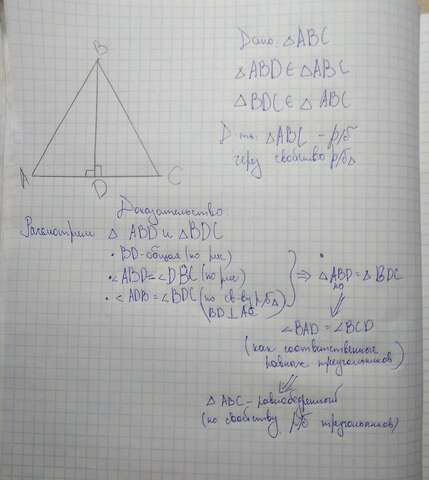 B
A
D
C
Дано: △ABC
△ABD ∈ △ABC
△BDC ∈ △ABC
Д-ть: △ABC - р/б
через свойство р/б△
Доказательство:
Рассмотрим △ ABD и △BDC
• BD-общая (по рис)
• <ABD=<DBC (по рис)
• < ADB=<BDC (по св-ву р/б△
BD⊥AC)
⇒ △ABD=△BDC
<BAD=<BCD
(как соответственные
равных треугольников)
△ ABC - равнобедренный
(по свойству р/б треугольников)